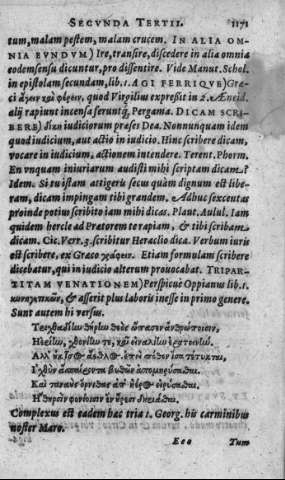 SECVNDA TERTII. 1171
tum, malam pestem, malam crucem. IN ALIA OM-
NIA EVNDVM) Ire, transire, discedere in alia omnia
eodem sensu dicuntur, pro dissentire. Vide Manut. Schol.
in epistolam secundam, lib. 1. AGI FERRIQVE) Græ-
ci ἄγειν καὶ φέρειν, quod Virgilius expreßit in 2. Æneid.
alij rapiunt incensa feruntq; Pergama. DICAM SCRI-
BERE) δίκη iudiciorum præses Dea. Nonnunquam idem
quod iudicium, aut actio in iudicio. Hinc scribere dicam,
vocare in iudicium, actionem intendere. Terent. Phorm.
En vnquam iniuriarum audisti mihi scriptam dicam?
Idem. Si tu istam attigeris secus quàm dignum est libe-
ram, dicam impingam tibi grandem. Adhuc sexcentas
proinde potius scribito iam mihi dicas. Plaut. Aulul. Iam
quidem hercle ad Prætorem te rapiam, & tibi scribam
dicam. Cic. Verr. 3. scribitur Heraclio dica. Verbum iuris
est scribere, ex Græco γράφειν. Etiam formulam scribere
dicebatur, qui in iudicio alterum prouocabat. TRIPAR-
TITAM VENATIONEM) Perspicuè Oppianus lib. 1.
κυνηγετικῶν, & asserit plus laboris inesse in primo genere.
Sunt autem hi versus.
Τειχθαδίην θήρην θεὸς ὤπασεν ἀνθρώποισιν,
Ηερίην, χθονίην τε, καὶ εἰναλίην ἐρατεινήν.
Αλλ' οὐκ ἶσος ἄεθλος.
Ιχθὺν ἀσπαίροντα βυθῶν ἀπομηρύσασθαι
Καὶ ταναοὺς ὄρνιθας ἀπ' ἠέρος εἰρύσασθαι
Η θηρσὶν φονίοισιν ἐν οὔρεσι δηρίσασθαι.
Complexus est eadem hæc tria 1. Georg. his carminibus
noster Maro.
Eee Tum